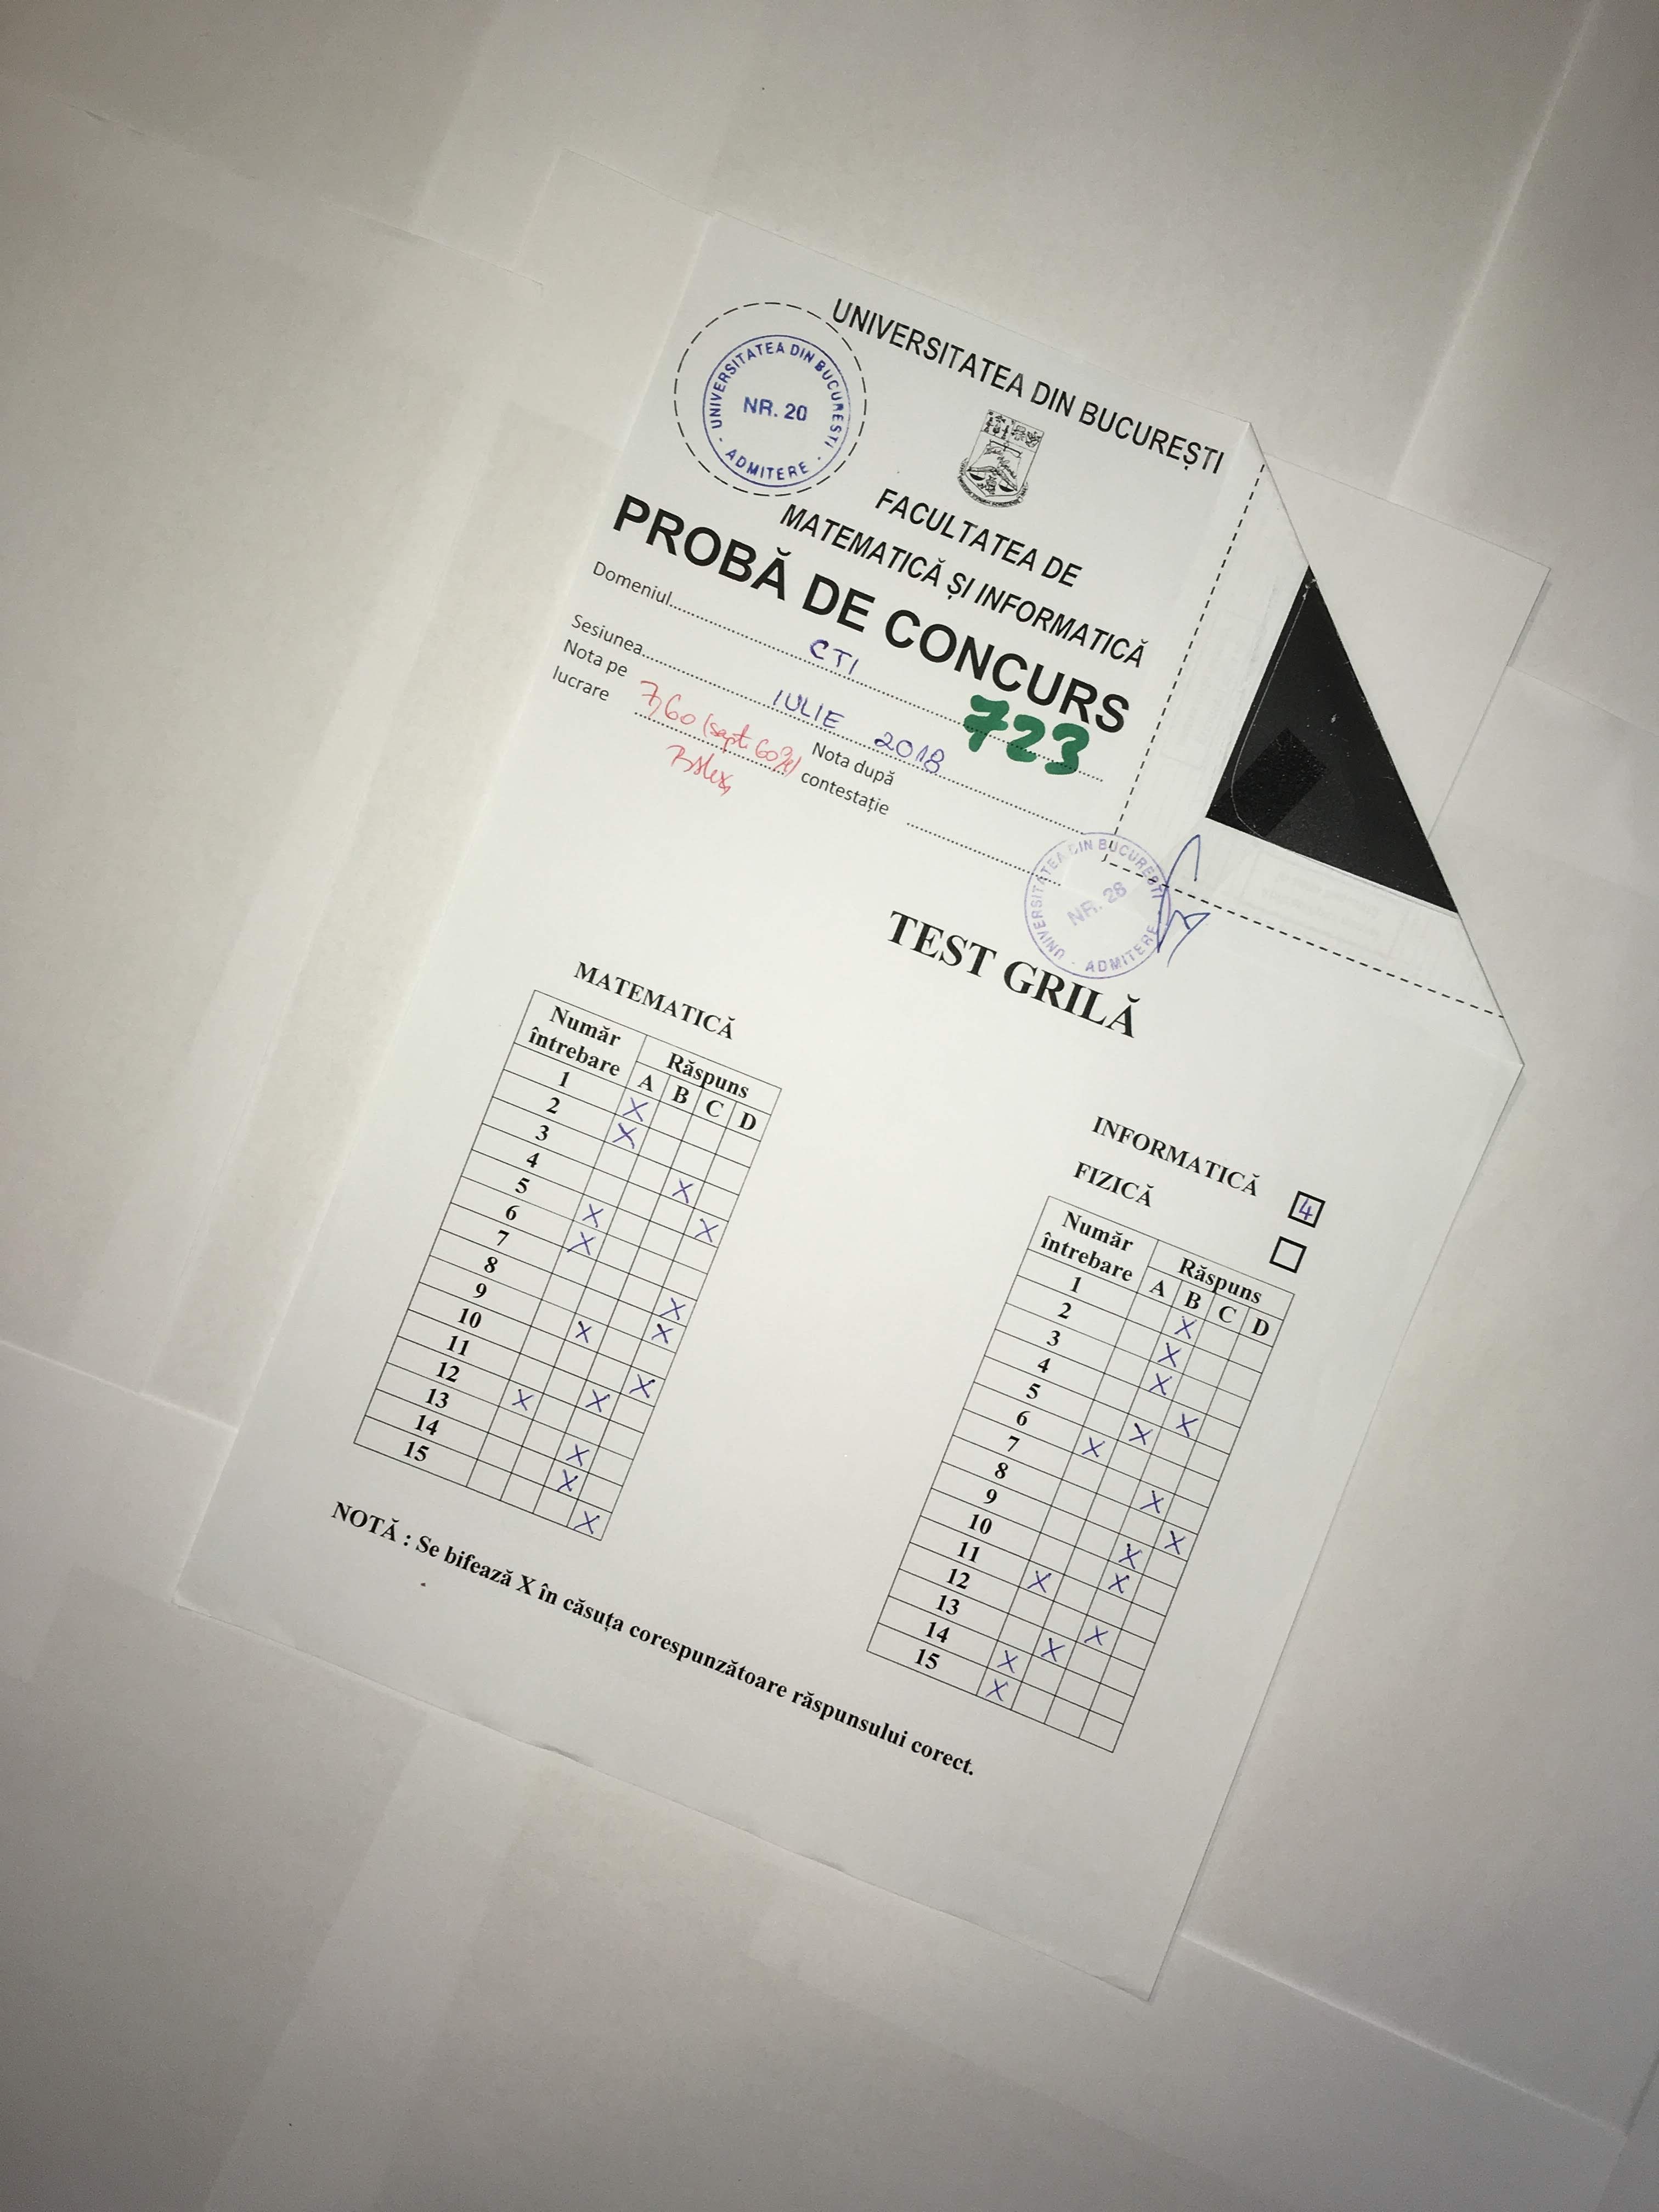 UNIVERSITATEA DIN BUCUREȘTI
UNIVERSITATEA DIN BUCUREȘTI · ADMITERE ·
NR. 20
FACULTATEA DE
MATEMATICĂ ȘI INFORMATICĂ
PROBĂ DE CONCURS
Domeniul CTI
723
Sesiunea IULIE 2018
Nota pe lucrare 7,60 (șapte 60%)
Nota după contestație
UNIVERSITATEA DIN BUCUREȘTI · ADMITERE ·
NR. 28
TEST GRILĂ
MATEMATICĂ
Număr întrebare Răspuns
A B C D
1 X
2 X
3 X
4 X
5 X
6 X
7 X
8 X
9 X
10 X
11 X
12 X
13 X
14 X
15 X
INFORMATICĂ 4
FIZICĂ
Număr întrebare Răspuns
A B C D
1 X
2 X
3 X
4 X
5 X
6 X
7 X
8 X
9 X
10 X
11 X
12 X
13 X
14 X
15 X
NOTĂ : Se bifează X în căsuța corespunzătoare răspunsului corect.